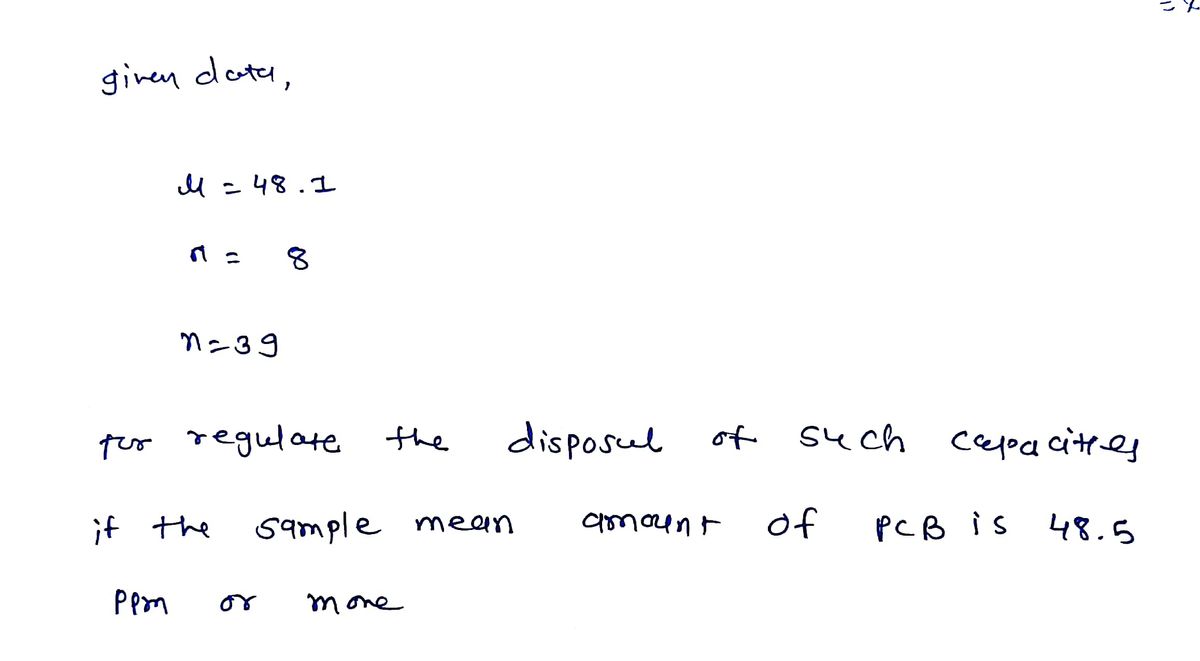 given data,
μ = 48.1
n = 8
n = 39
for regulate the disposal of such capacities
if the sample mean amount of PCB is 48.5
PPm or more